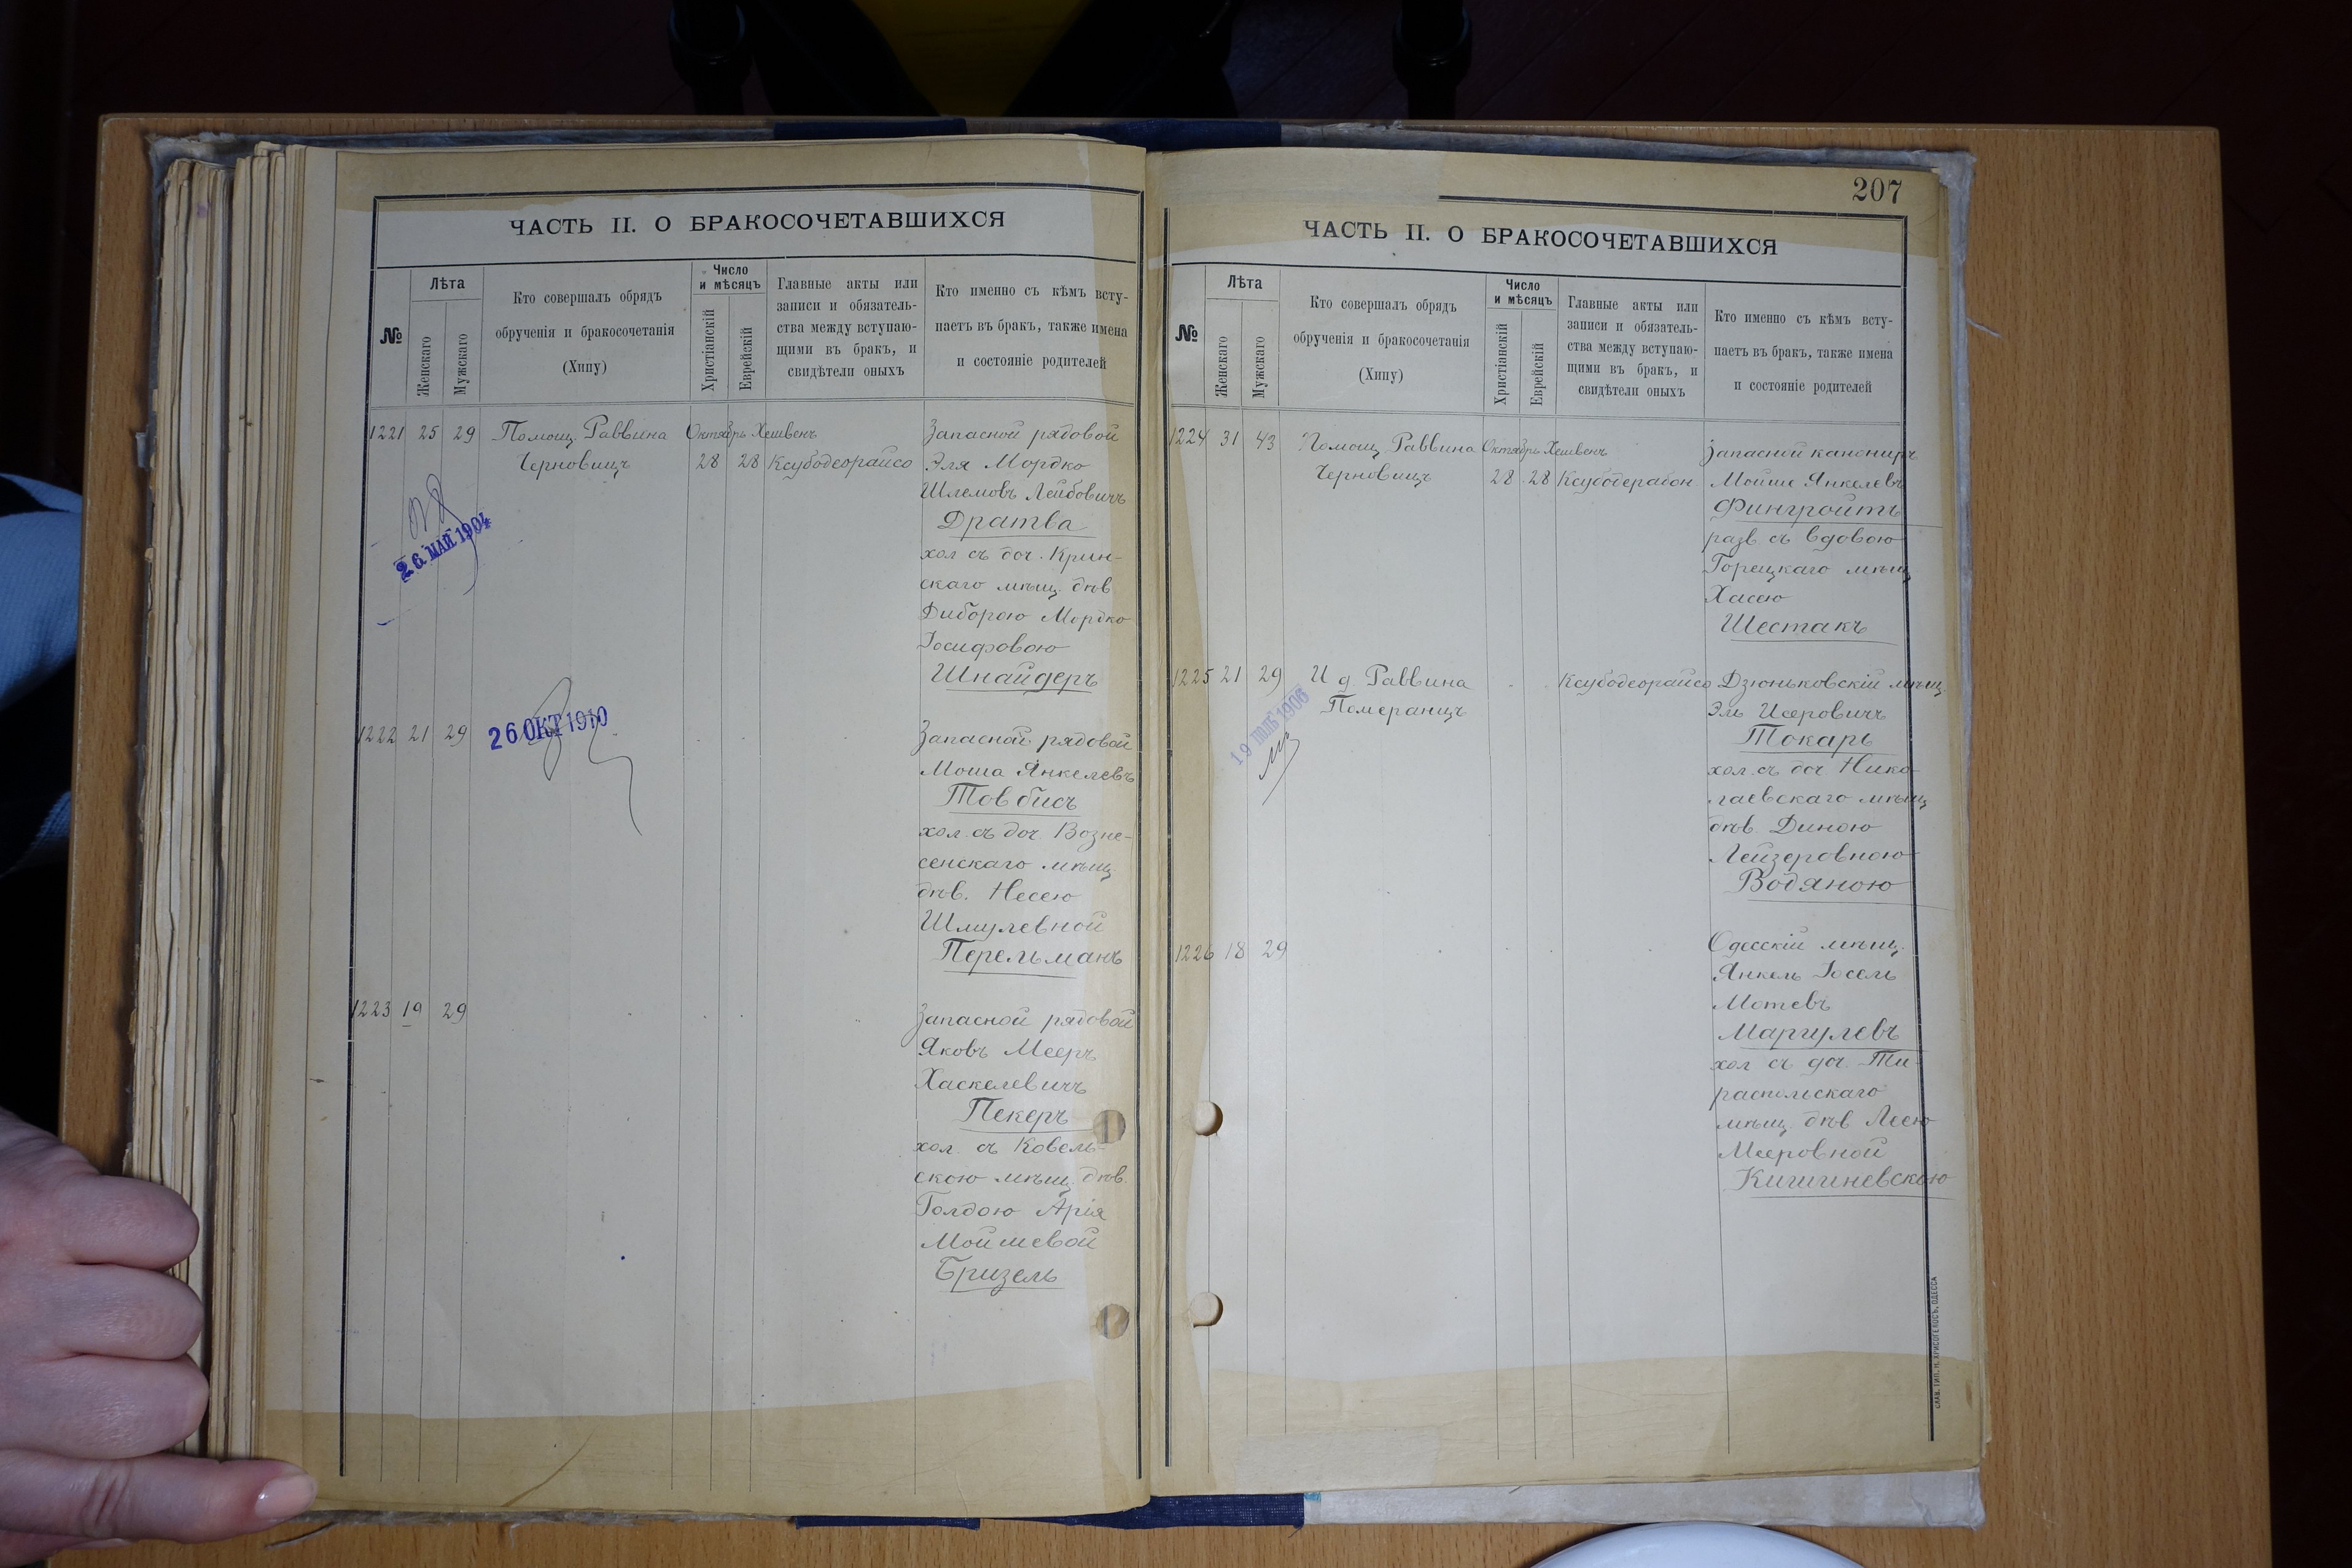 ЧАСТЬ II. О БРАКОСОЧЕТАВШИХСЯ
№
Лѣта
Женскаго
Мужскаго
Кто совершалъ обрядъ
обрученія и бракосочетанія
(Хипу)
Число
и мѣсяцъ
Христіанскій
Еврейскій
Главные акты или
записи и обязатель-
ства между вступаю-
щими въ бракъ, и
свидѣтели оныхъ
Кто именно съ кѣмъ всту-
паетъ въ бракъ, также имена
и состояніе родителей
1221 25 29 Помощ. Раввина Октябрь Хешвенъ Запасной рядовой
Черновицъ 28 28 Ксубодеорайсо Эля Мордко
Шлемовъ Лейбовичъ
Дратва
хол съ доч. Крин-
скаго мѣщ. дѣв
Диборою Мордко
Іосифовою
Шнайдеръ
26 МАЙ 1904
1222 21 29 Запасной рядовой
26 ОКТ 1910
Моша Янкелевъ
Товбисъ
хол. съ доч Возне-
сенскаго мѣщ
дѣв. Несею
Шмулевной
Перельманъ
1223 19 29 Запасной рядовой
Яковъ Мееръ
Хаскелевичъ
Пекеръ
хол. съ Ковель-
скою мѣщ. дѣв.
Голдою Арія
Мойшевой
Бризель
207
ЧАСТЬ II. О БРАКОСОЧЕТАВШИХСЯ
№
Лѣта
Женскаго
Мужскаго
Кто совершалъ обрядъ
обрученія и бракосочетанія
(Хипу)
Число
и мѣсяцъ
Христіанскій
Еврейскій
Главные акты или
записи и обязатель-
ства между вступаю-
щими въ бракъ, и
свидѣтели оныхъ
Кто именно съ кѣмъ всту-
паетъ въ бракъ, также имена
и состояніе родителей
1224 31 43 Помощ Раввина Октябрь Хешвенъ Запасной канониръ
Черновицъ 28 28 Ксубодерабон Мойше Янкелевъ
Фингройтъ
разв. съ вдовою
Горецкаго мѣщ
Хасею
Шестакъ
1225 21 29 И д. Раввина Ксубодеорайсо Дзюньковскій мѣщ.
Померанцъ Эль Исеровичъ
Токарь
хол. съ доч Нико-
лаевскаго мѣщ
дѣв. Диною
Лейзеровною
Водяною
1906
1226 18 29 Одесскій мѣщ.
Янкель Іосель
Мотевъ
Маргулевъ
хол съ доч. Ти-
распольскаго
мѣщ. дѣв Леею
Мееровной
Кишиневскою
СЛАВ. ТИП. Н. ХРИСОГЕЛОСЪ, ОДЕССА